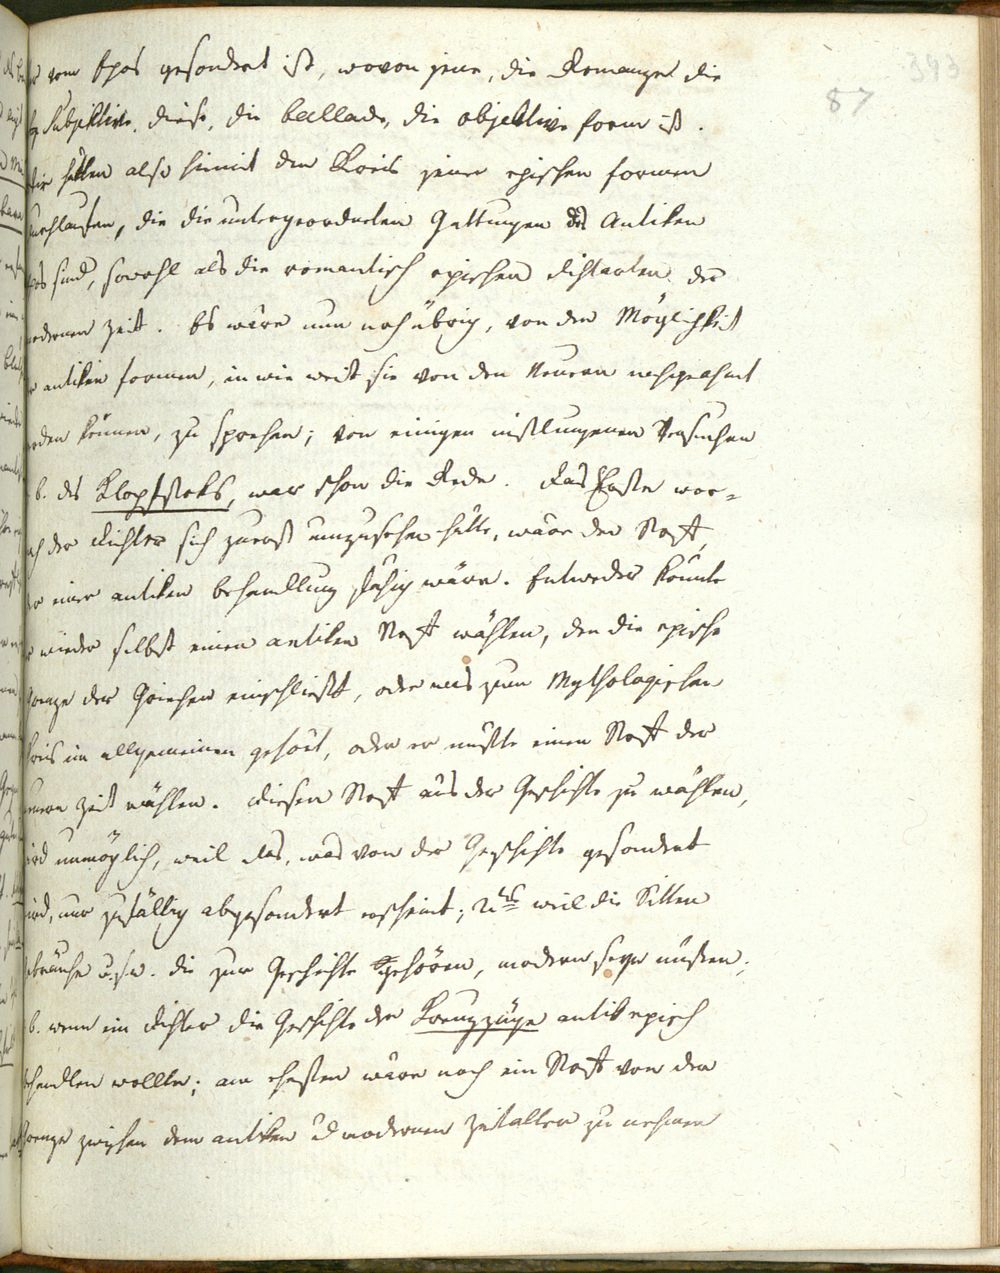 393
87
vom Epos gesondert ist, wovon jene, die Romanze die
Subjektive, diese, die ballade, die objektive form ist.
hätten also hiemit den Kreis jener epischen formen
durchlaufen, die die untergeordneten Gattungen des Antiken
sind, sowohl als die romantisch epischen dichtarten der
modernen Zeit. Es wäre nun noch übrig, von der Möglichkeit
antiken formen, in wie weit sie von den Neuern nachgeahmt
werden können, zu sprechen; von einigen mislungenen Versuchen
b. des Klopfstoks, war schon die Rede. Das Erste wor-
nach der dichter sich zuerst umzusehen hätte, wäre der Stoff,
einer antiken behandlung fähig wäre. Entweder könnte
wieder selbst einen antiken Stoff wählen, den die epische
der Griechen einschließt, oder was zum Mythologischen
Kreis im allgemeinen gehört, oder er müßte einen Stoff der
neuern Zeit wählen. diesen Stoff aus der Geschichte zu wählen,
wird unmöglich, weil das, was von der Geschichte gesondert
wird, nur zufällig abgesondert erscheint; 2tens weil die Sitten
Gebräuche u.s.w. die zur Geschichte gehören, modern seyn müsten;
b. wenn ein dichter die Geschichte der Kreuzzüge antik episch
behandlen wollte; am ehesten wäre noch ein Stoff von der
Grenze zwischen dem antiken u modernen Zeitalter zu nehmen